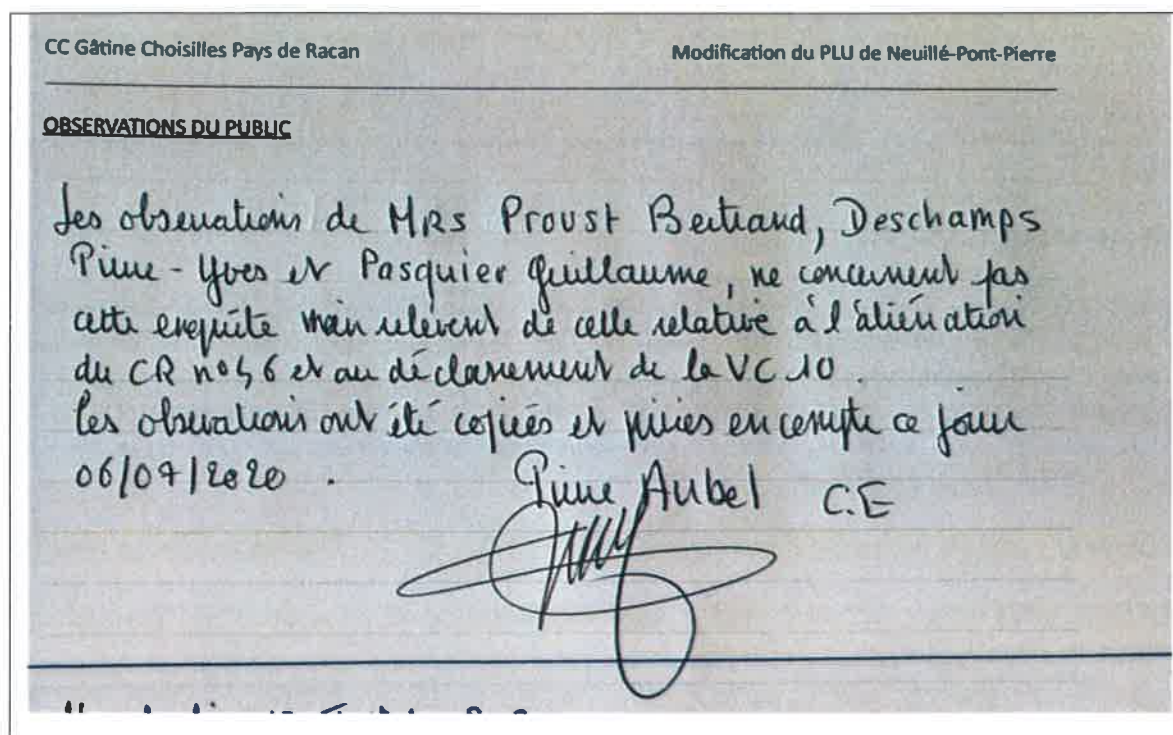 CC Gâtine Choisilles Pays de Racan
Modification du PLU de Neuillé-Pont-Pierre
OBSERVATIONS DU PUBLIC
Les observations de MRs Proust Bertrand, Deschamps
Pierre-Yves et Pasquier Guillaume, ne concernent pas
cette enquête mais relèvent de celle relative à l'aliénation
du CR n° 56 et au déclassement de la VC 10.
Ces observations ont été copiées et prises en compte ce jour
06/07/2020.
Pierre Aubel C.E